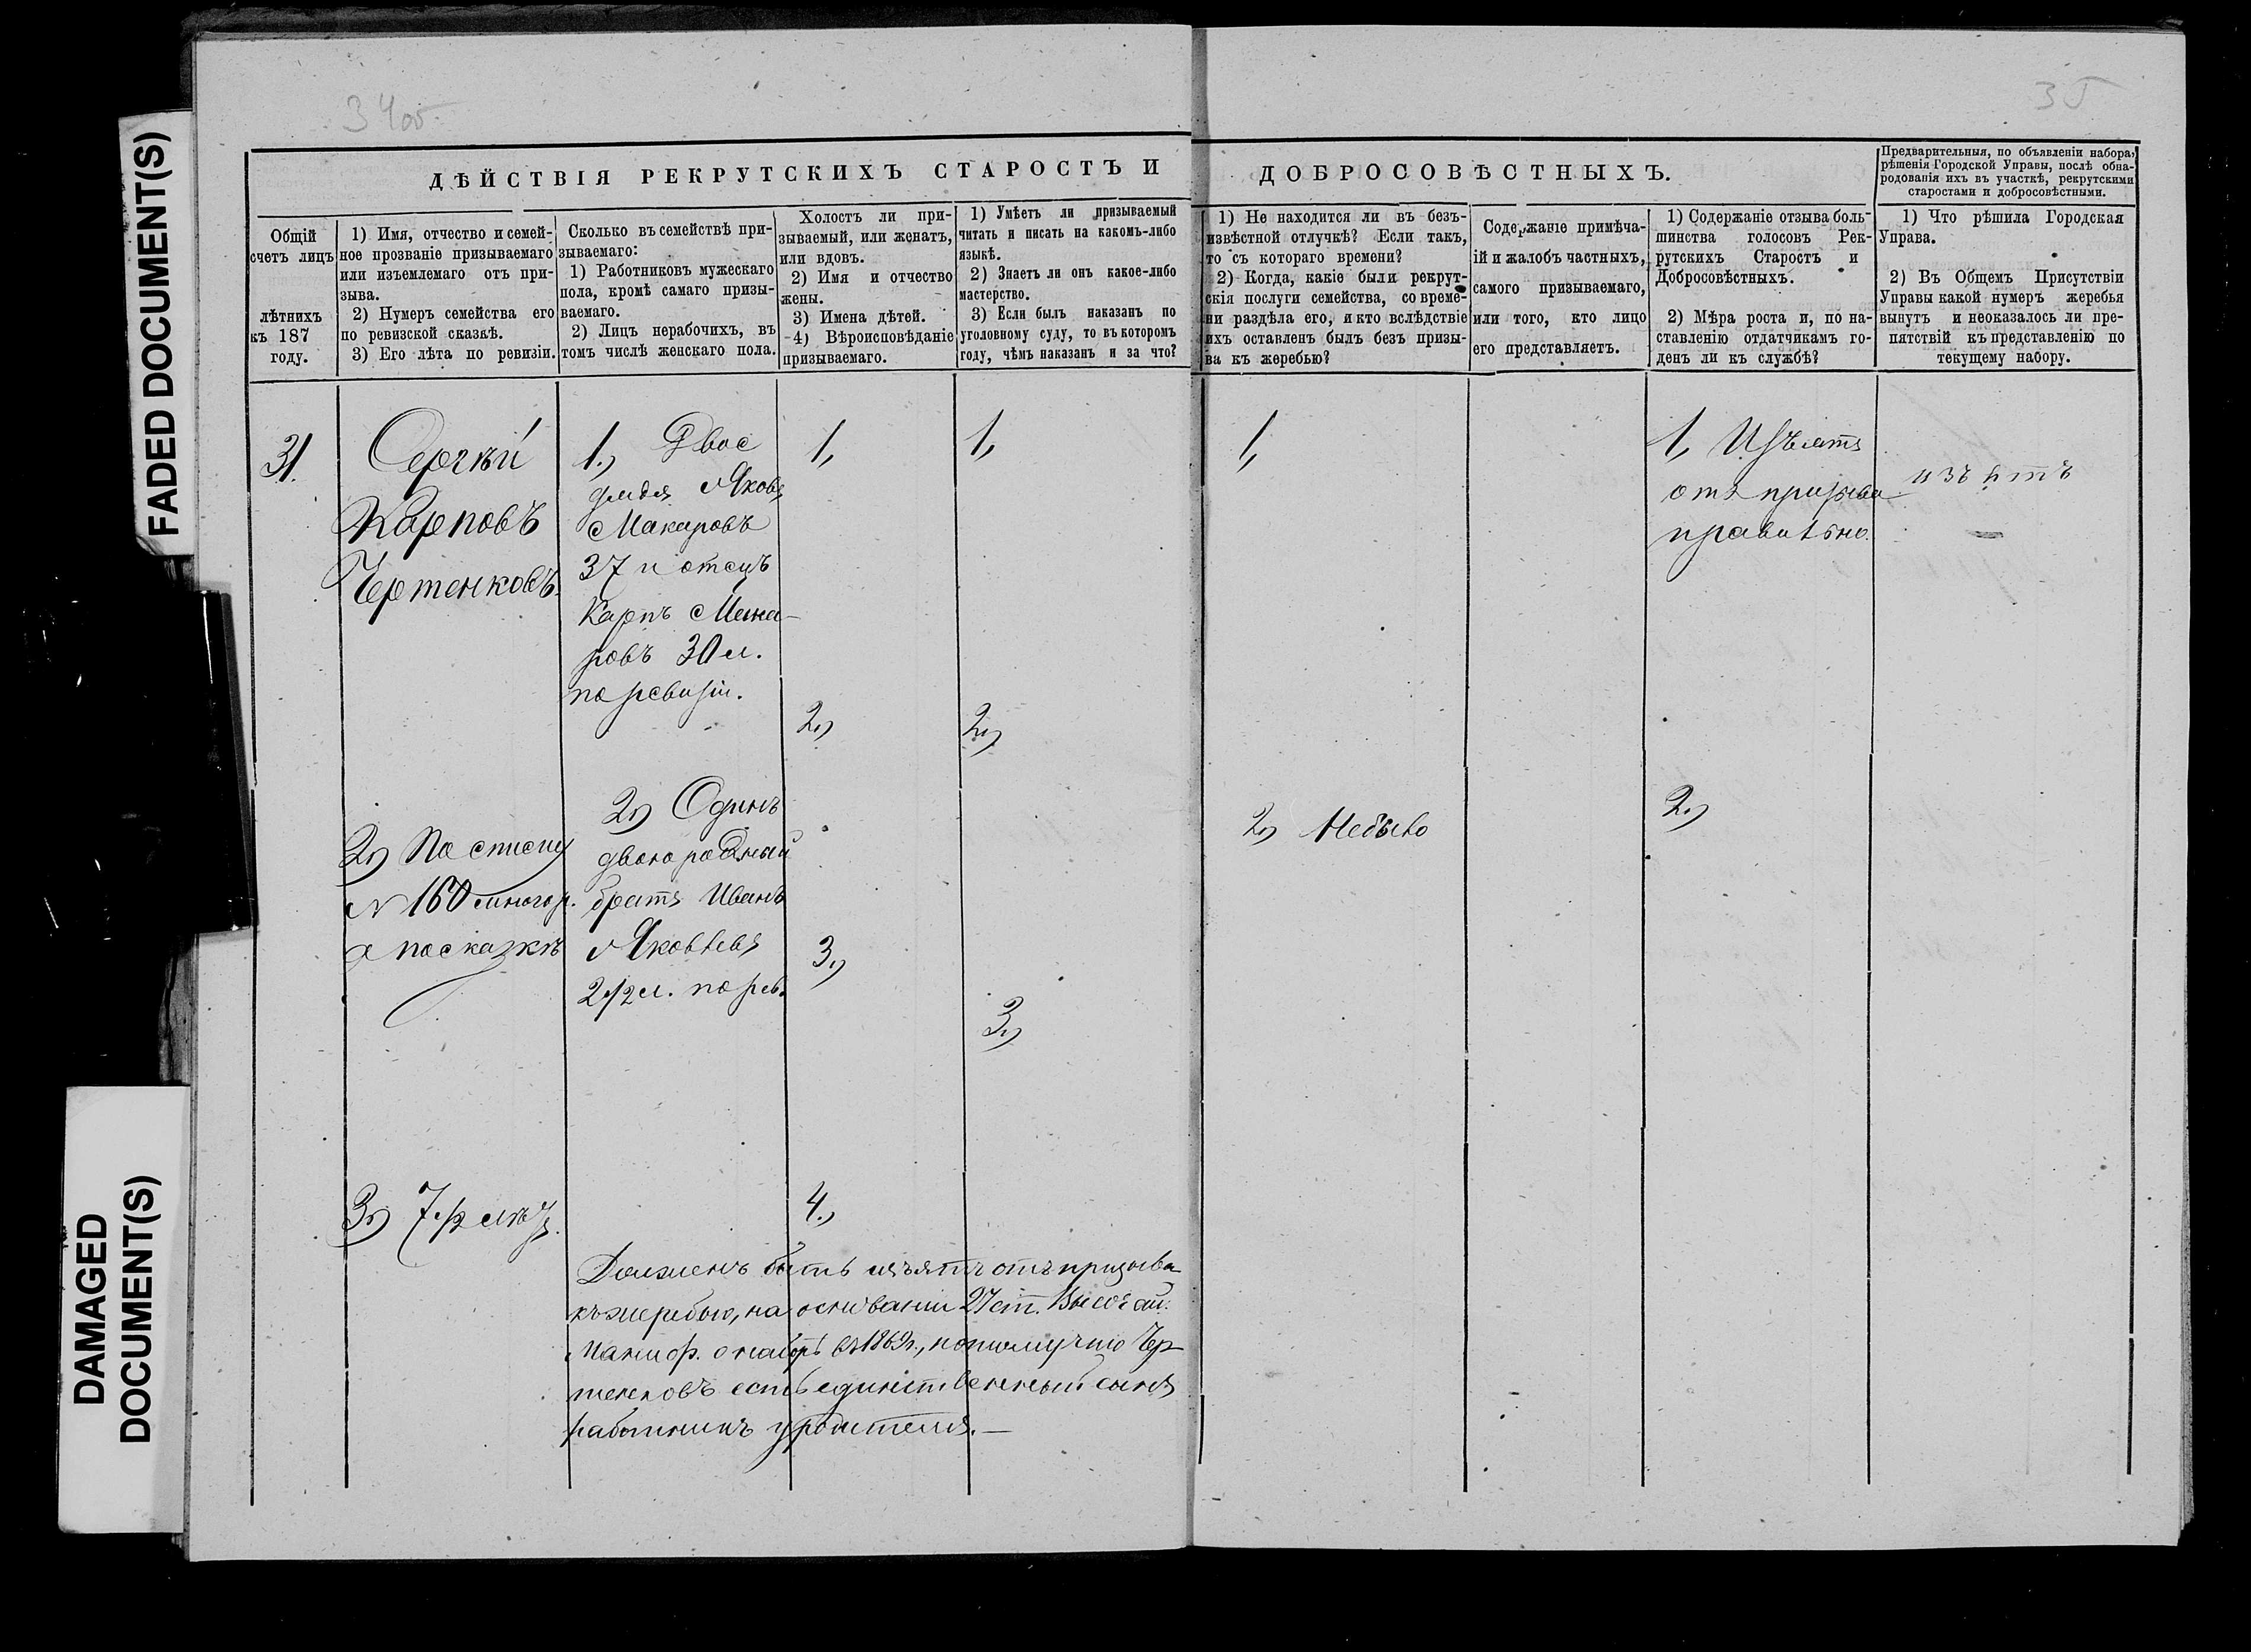 FADED DOCUMENT(S)
DAMAGED
DOCUMENT(S)
34об.
35
ДѢЙСТВІЯ РЕКРУТСКИХЪ СТАРОСТЪ И
ДОБРОСОВѢСТНЫХЪ.
Предварительныя, по объявленіи набора,
рѣшенія Городской Управы, послѣ обна-
родованія ихъ въ участкѣ, рекрутскими
старостами и добросовѣстными.
Общій
счетъ лицъ
лѣтнихъ
къ 187
году.
1) Имя, отчество и семей-
ное прозваніе призываемаго
или изъемлемаго отъ при-
зыва.
2) Нумеръ семейства его
по ревизской сказкѣ.
3) Его лѣта по ревизіи.
Сколько въ семействѣ при-
зываемаго:
1) Работниковъ мужескаго
пола, кромѣ самаго призы-
ваемаго.
2) Лицъ нерабочихъ, въ
томъ числѣ женскаго пола.
Холостъ ли при-
зываемый, или женатъ,
или вдовъ.
2) Имя и отчество
жены.
3) Имена дѣтей.
4) Вѣроисповѣданіе
призываемаго.
1) Умѣетъ ли призываемый
читать и писать на какомъ-либо
языкѣ.
2) Знаетъ ли онъ какое-либо
мастерство.
3) Если былъ наказанъ по
уголовному суду, то въ которомъ
году, чѣмъ наказанъ и за что?
1) Не находится ли въ безъ-
извѣстной отлучкѣ? Если такъ,
то съ котораго времени?
2) Когда, какіе были рекрут-
скія послуги семейства, со време-
ни раздѣла его, и кто вслѣдствіе
ихъ оставленъ былъ безъ призы-
ва къ жеребью?
Содержаніе примѣча-
ій и жалобъ частныхъ,
самого призываемаго,
или того, кто лицо
его представляетъ.
1) Содержаніе отзыва боль-
шинства голосовъ Рек-
рутскихъ Старостъ и
Добросовѣстныхъ.
2) Мѣра роста и, по на-
ставленію отдатчикамъ го-
денъ ли къ службѣ?
1) Что рѣшила Городская
Управа.
2) Въ Общемъ Присутствіи
Управы какой нумеръ жеребья
вынутъ и неоказалось ли пре-
пятствій къ представленію по
текущему набору.
31.
Сергѣй
Карповъ
Чертенковъ.
2.) По списку
№ 160 многор.
а по сказкѣ
3.) 7 1/2 мѣс.
1.) Двое
дядя Яковъ
Макаровъ
37 и отецъ
Карпъ Мака-
ровъ 30 л.
по ревизіи.
2.) Одинъ
двоюродный
братъ Иванъ
Яковлевъ
2 1/2 л. по рев.
1,
2.)
3.)
4.)
1,
2.)
3.)
Долженъ быть изъятъ отъ призыва
къ жеребью, на основаніи 27 ст. Высочай.
Маниф. о наборѣ въ 1869 г., потому что Чер-
тенковъ есть единственный сынъ
работникъ у родителя.—
1,
2.) Небыло
1, Изъятъ
отъ призыва
правильно.
2.)
изътъ